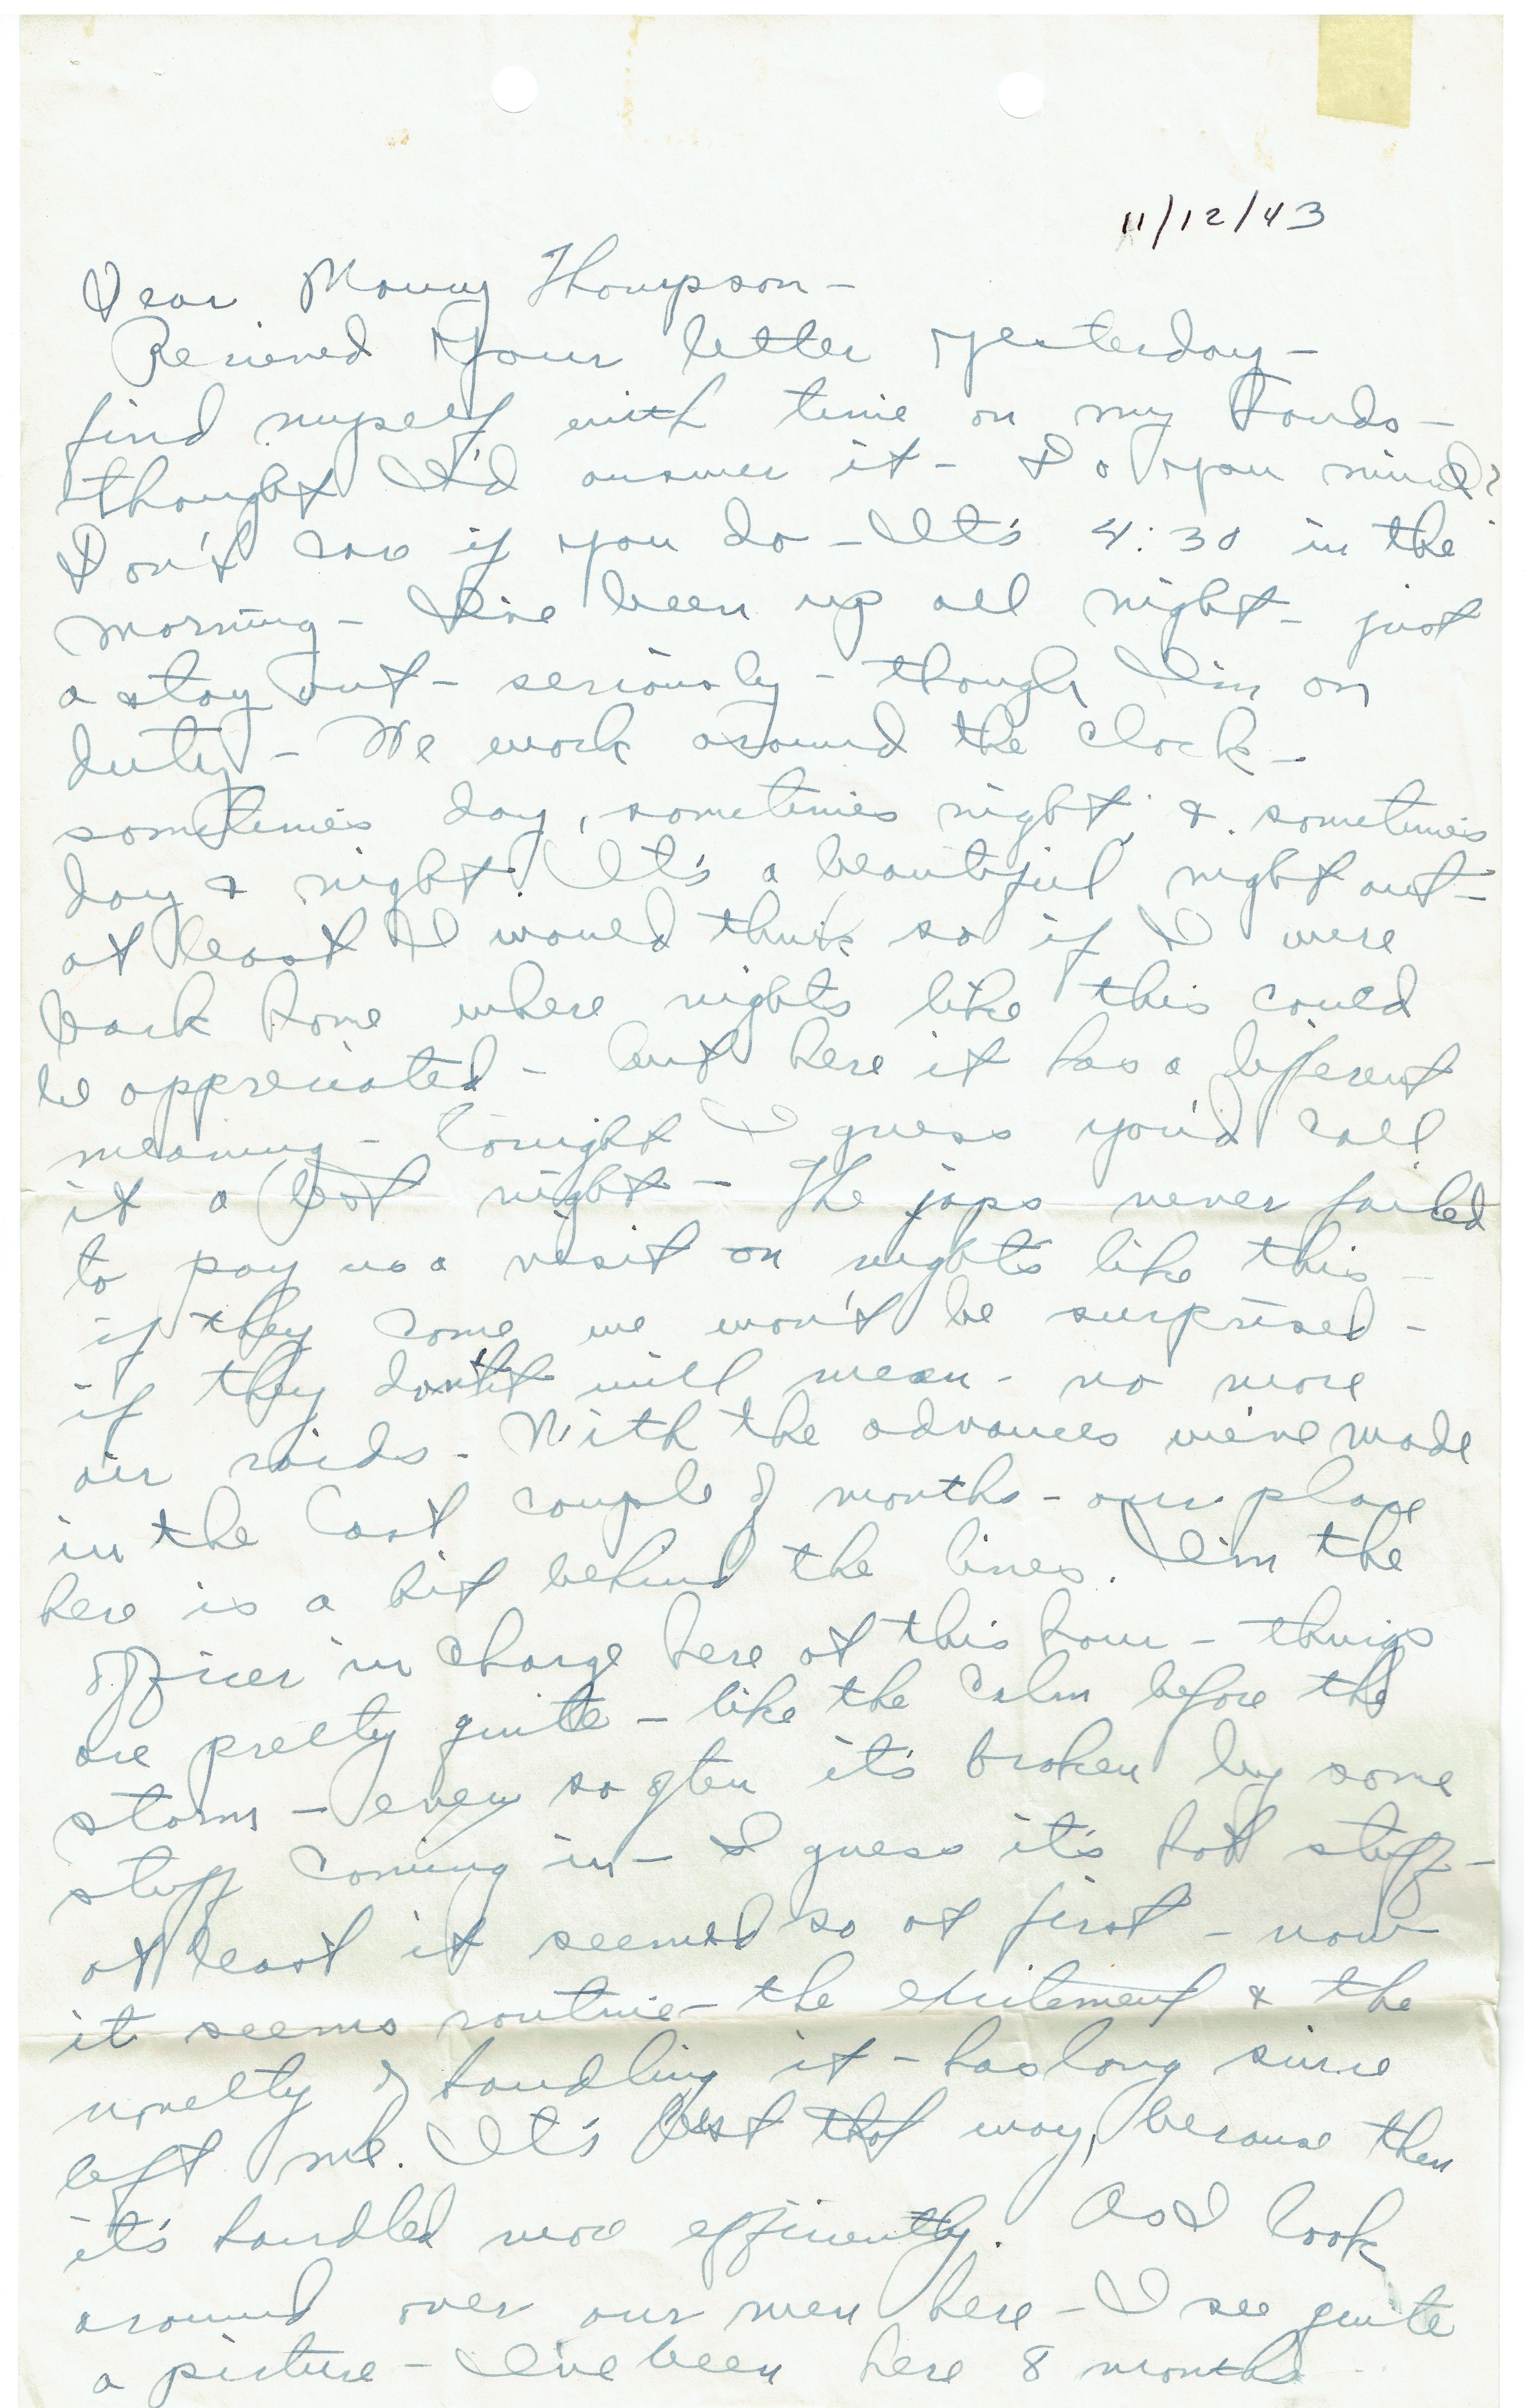 11/12/43
Dear Mommy Thompson-
Recieved your letter yesterday-
find myself with time on my hands-
thought I'd answer it- Do you mind?
Don't care if you do - It's 4:30 in the
morning- I've been up all night- just
a stay out- seriously- though I'm on
duty- We work around the clock-
sometimes day, sometimes night, & sometimes
day & night. It's a beautiful night out-
at least I would think so if I were
back home where nights like this could
be appreciated- but here it has a diferent
meaning- tonight I guess you'd call
it a test night- The japs never failed
to pay us a visit on nights like this-
if they come we won't be surprised-
if they don't it will mean- no more
air raids- With the advances we've made
in the last couple of months- our place
here is a bit behind the lines. I'm the
officer in charge here at this hour- things
are pretty quite- like the calm before the
storm- every so often it's broken by some
stuff coming in- I guess it's hot stuff-
at least it seemed so at first- now
it seems routine- the excitement & the
novelty of handling it- has long since
left me. It's best that way, because then
it's handled more efficiently. As I look
around over our men here- I see quite
a picture- I've been here 8 months